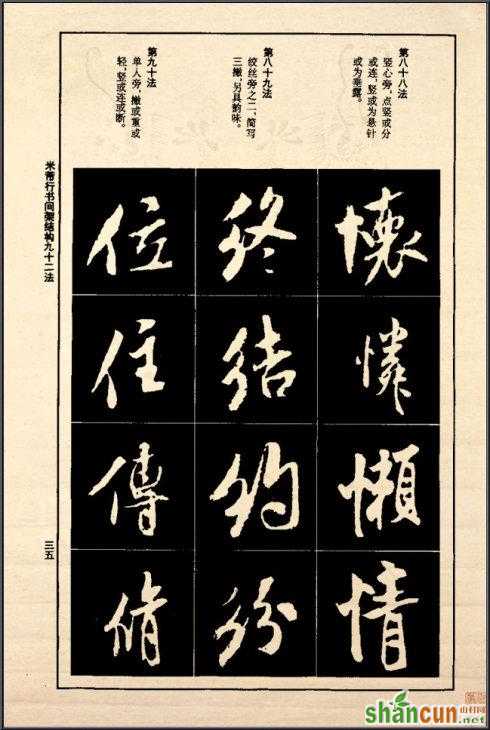 第八十八法
竖心旁，点竖或分
或连，竖或为悬针
或为垂露。
第八十九法
绞丝旁之二、简写
三撇，另具韵味。
第九十法
单人旁，撇或重或
轻，竖或连或断。
懷
憐
懶
情
終
結
約
紛
位
住
傳
脩
米芾行书间架结构九十二法
三五
shancun
山村网
.net